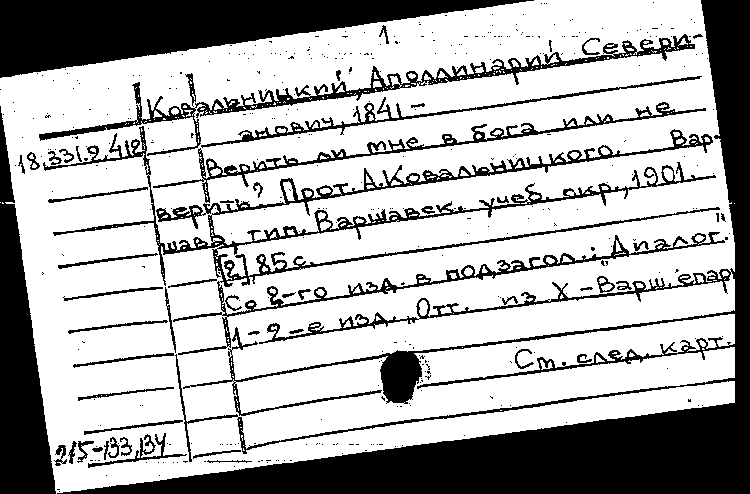 1.
Ковальницкий, Аполлинарий Севери-
анович, 1841 -
18.331.2.412
Верить ли мне в бога или не
верить? Прот. А. Ковальницкого. Вар-
шава, тип. Варшавск. учеб. окр., 1901.
[2], 85 с.
Со 2-го изд. в подзагол.: „Диалог."
1-2-е изд. „Отт. из Х.-Варш. епарх
См. след. карт.
215-133,134